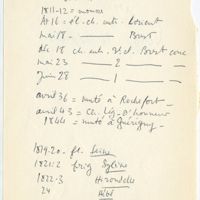 1811-12 = mousse
At 16 = él. ch. ... Lorient
mai 18 — Brest
déc 18 ch. ... Brest
mai 23 — 2 —
Juin 28 — 1 —
avril 36 = muté à Rochefort
avril 43 = Ch. Lég. d'honneur
1844 = muté à Guérigny
1819-20 fl. Seine
1821-2 frég Sylène
1822-3 Hirondelle
24